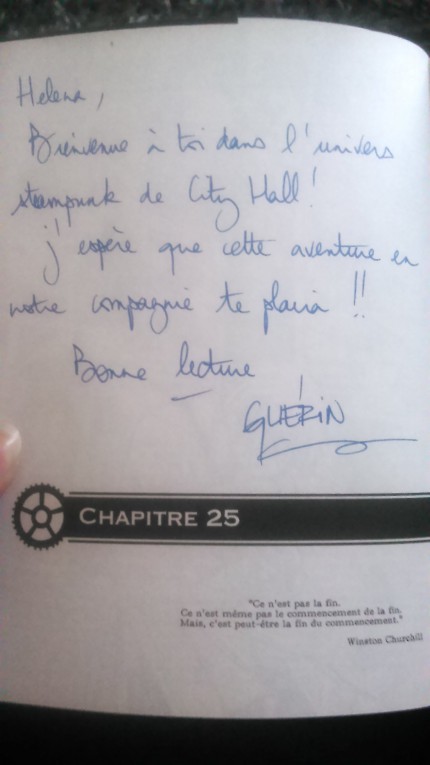 Helena,
Bienvenue à toi dans l'univers
steampunk de City Hall!
j'espère que cette aventure en
notre compagnie te plaira !!
Bonne lecture
GUÉRIN
CHAPITRE 25
"Ce n'est pas la fin.
Ce n'est même pas le commencement de la fin.
Mais, c'est peut-être la fin du commencement."
Winston Churchill